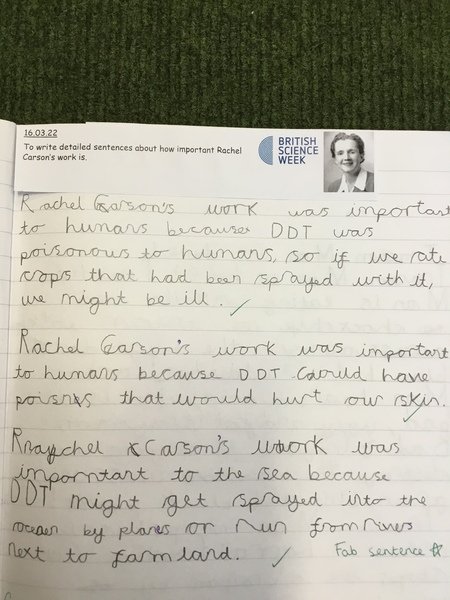 16.03.22
To write detailed sentences about how important Rachel
Carson's work is.
BRITISH
SCIENCE
WEEK
Rachel Carson's work was important
to humans because DDT was
poisonous to humans, so if we ate
crops that had been sprayed with it,
we might be ill. ✓
Rachel Carson's work was important
to humans because DDT could have
poisns that would hurt our skin. ✓
Rachel Carson's work was
imporntant to the sea because
DDT might get sprayed into the
ocean by planes or run from rivers
next to farmland. ✓ Fab sentence ☆